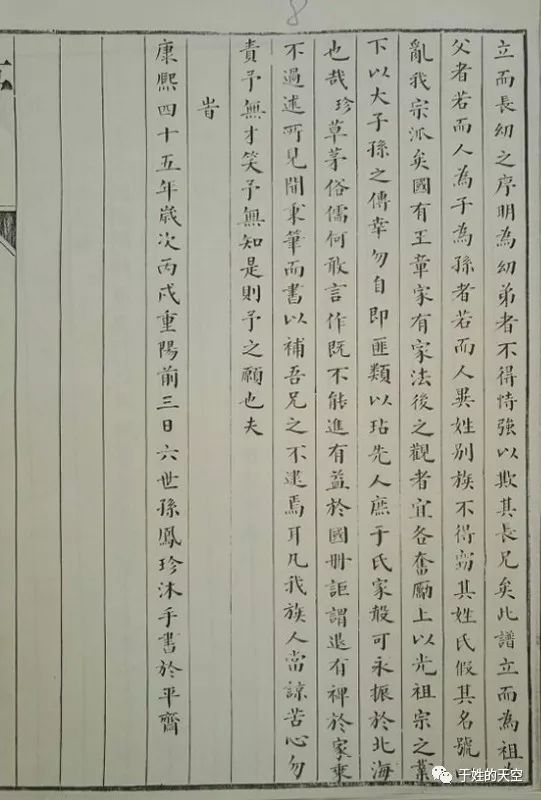 8
立而長幼之序明為幼弟者不得恃強以欺其長兄矣此譜立而為祖
父者若而人為子為孫者若而人異姓別族不得竊其姓氏假其名號
亂我宗派矣國有王章家有家法後之觀者宜各奮勵上以光祖宗之業
下以大子孫之傳幸勿自即匪類以玷先人庶于氏家聲可永振於北海
也哉珍草茅俗儒何敢言作既不能進有益於國冊詎謂退有裨於家乘
不過述所見聞秉筆而書以補吾兄之不逮焉耳凡我族人當諒苦心勿
責予無才笑予無知是則予之願也夫
旹
康熙四十五年歲次丙戌重陽前三日六世孫鳳珍沐手書於平齊
于姓的天空